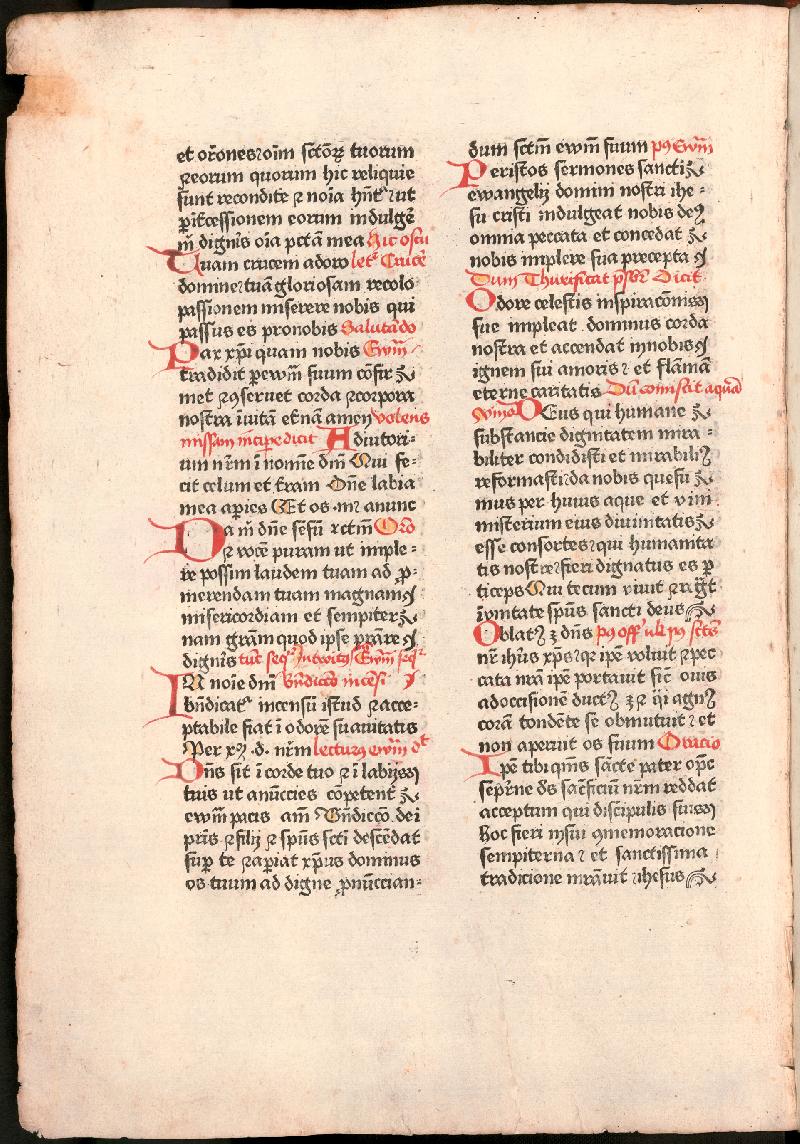 et or̃ones ⁊ oĩm sctõꝝ tuorum
⁊ eorum quorum hic reliquie
sunt recondite ⁊ noĩa hñt ⁊ ut
ꝑ ĩtcessionem eorum indulgẽ
m̃ digñis oĩa pctã mea hic oscu
Tuam crucem adoro letr Crucẽ
domine ⁊ tuã gloriosam recolo
passionem miserere nobis qui
passus es pro nobis Salutãdo
Pax xp̃i quam nobis Ewm̃
tradidit ꝑ ewm̃ suum cõfir
met ⁊ ꝯseruet corda ⁊ corpora
nostra ĩ uitã etñã amen volens
missam incipe dicit Adiutori-
um nr̃m ĩ nomĩe dm̃ Qui fe-
cit celum et t̃ram Dñe labia
mea apies Et os mr̃ anunc
Da m̃ dñe sẽsũ rctm̃ Oro
⁊ vocẽ puram ut imple-
re possim laudem tuam ad ꝓ-
merendam tuam magnam
misericordiam et sempiter
nam grãm quod ipse prãre
digñis tũc seqr Introitꝰ Ewm̃ seqr
IN noĩe dm̃ bñdictõ incẽsi
bñdicatr incensũ istud ⁊ acce-
ptabile fiat ĩ odorẽ suauitatis
Per xꝫ d. nr̃m lecturꝰ ewm̃ dt
Dñs sit ĩ corde tuo ⁊ ĩ labijs
tuis ut anũccies cõpetent
ewm̃ pacis am̃ Bñdiccõ dei
pr̃is ⁊ filij ⁊ sp̃us scti descẽdat
suꝑ te ⁊ aꝑiat xp̃us dominus
os tuum ad digne ꝓnũccian-
dum sctm̃ ewm̃ suum pꝰ Ewm̃
Per istos sermones sancti
ewangelij domini nostri ihe-
su cristi indulgeat nobis deꝰ
omnia peccata et concedat
nobis implere sua precepta
Dum Thurificat prsbr Dicit
Odore celestis inspiracõnis
sue impleat dominus corda
nostra et accendat in nobis
ignem sui amoris ⁊ et flãmã
eterne caritatis Dũ cõmiscit aquã
vino DEus qui humane
substancie dignitatem mira-
biliter condidisti et mirabiliꝰ
reformasti ⁊ da nobis quesu
mus per huius aque et vini
misterium eius diuinitatis
esse consortes ⁊ qui humanita
tis nostre ⁊ fieri dignatus es ꝑ
ticeps Qui tecum viuit ⁊ rãgt
ĩ vnitate sp̃us sancti deus
Oblatꝰ ꝫ dñs pꝰ off ul pꝰ sctũs
nr̃ ihũs xp̃s ⁊ qr ip̃e voluit ⁊ pec
cata nr̃a ip̃e portauit sic̃ ouis
ad occisionẽ ductꝰ ꝫ ⁊ q̃i agnꝰ
corã tondẽte se obmutuit ⁊ et
non aperuit os suum Oracio
Ipẽ tibi qm̃s sãcte pater opc̃
sepr̃ne ds̃ sac̃ficiũ nr̃m reddat
acceptum qui discipulis suis
hoc fieri in sui ꝯmemoracione
sempiterna ⁊ et sanctissima
tradicione mr̃auit ⁊ ihesus